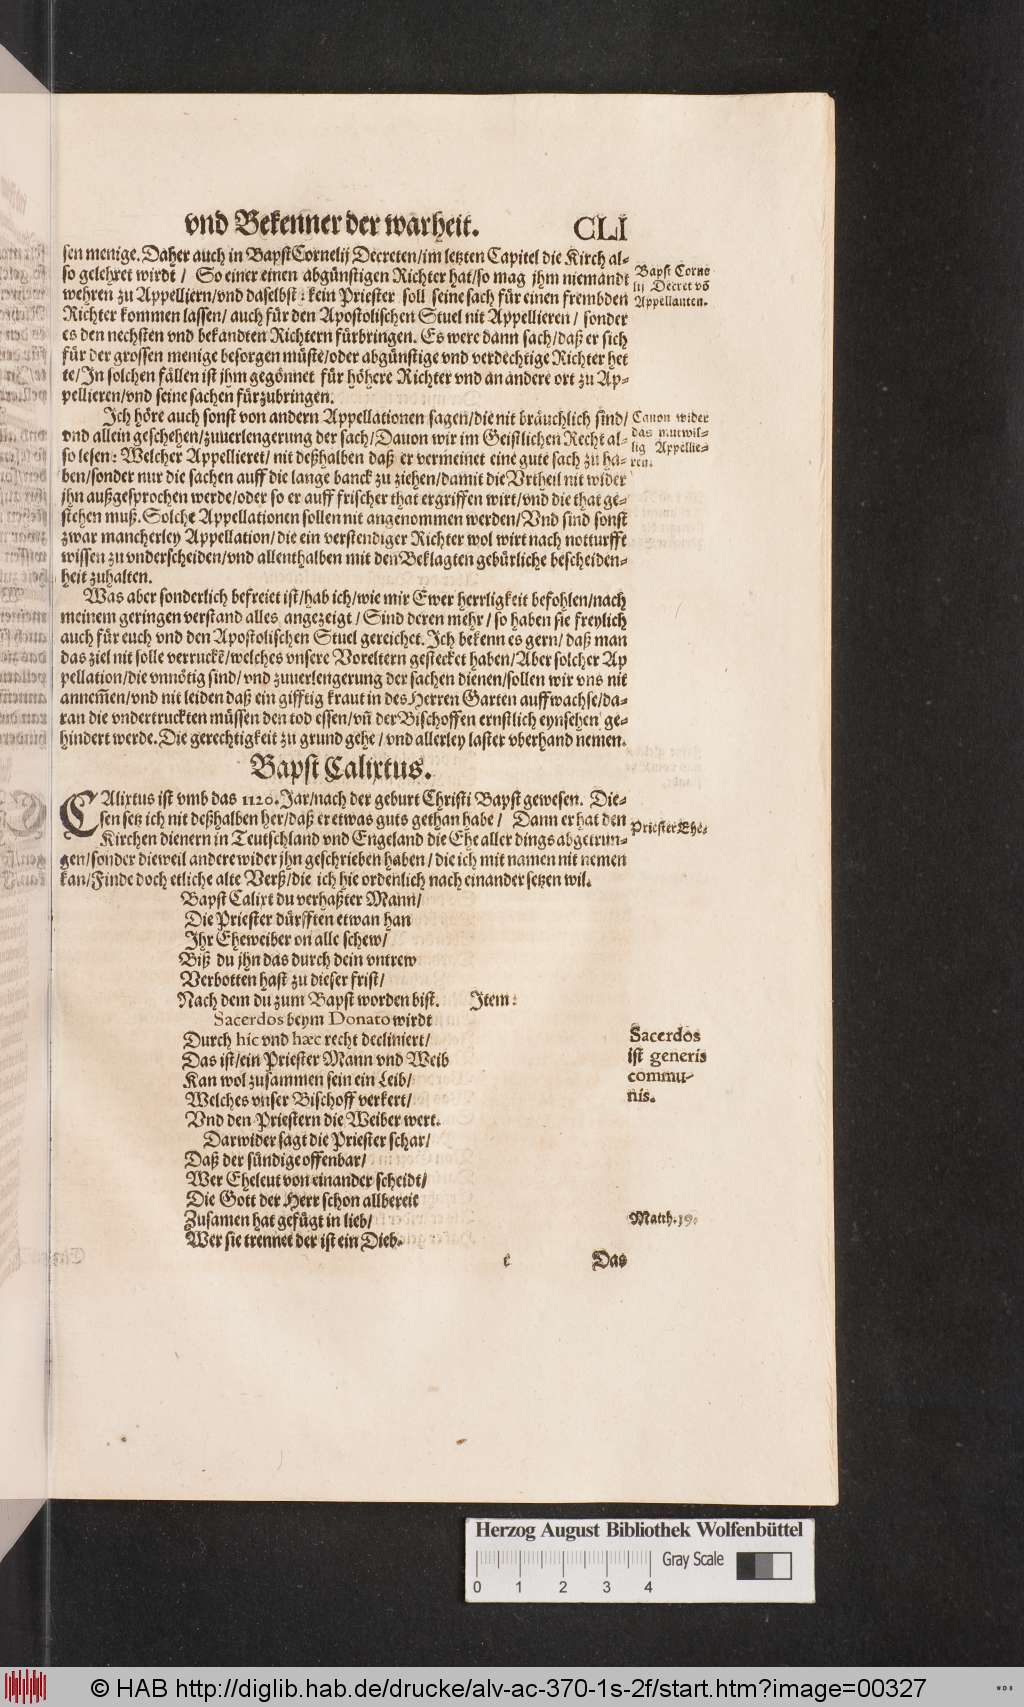 vnd Bekenner der warheit. CLI
sen menige. Daher auch in Bapst Cornelij Decreten/im letzten Capitel die Kirch al-
so gelehret wirdt / So einer einen abgünstigen Richter hat/so mag jhm niemandt
wehren zu Appelliern/vnd daselbst: kein Priester soll seine sach für einen frembden
Richter kommen lassen/ auch für den Apostolischen Stuel nit Appellieren/ sonder
es den nechsten vnd bekandten Richtern fürbringen. Es were dann sach/daß er sich
für der grossen menige besorgen müste/oder abgünstige vnd verdechtige Richter het
te/In solchen fällen ist jhm gegönnet für höhere Richter vnd an andere ort zu Ap-
pellieren/vnd seine sachen fürzubringen.
Bapst Corne
lij Decret võ
Appellanten.
Ich höre auch sonst von andern Appellationen sagen/die nit bräuchlich sind/
vnd allein geschehen/zuuerlengerung der sach/Dauon wir im Geistlichen Recht al-
so lesen: Welcher Appellieret/ nit deßhalben daß er vermeinet eine gute sach zu ha-
ben/sonder nur die sachen auff die lange banck zu ziehen/damit die Vrtheil nit wider
jhn außgesprochen werde/oder so er auff frischer that ergriffen wirt/vnd die that ge-
stehen muß. Solche Appellationen sollen nit angenommen werden/Vnd sind sonst
zwar mancherley Appellation/die ein verstendiger Richter wol wirt nach notturfft
wissen zu vnderscheiden/vnd allenthalben mit den Beklagten gebürliche bescheiden-
heit zuhalten.
Canon wider
das mutwil-
lig Appellie-
ren.
Was aber sonderlich befreiet ist/hab ich/wie mir Ewer herrligkeit befohlen/nach
meinem geringen verstand alles angezeigt / Sind deren mehr/ so haben sie freylich
auch für euch vnd den Apostolischen Stuel gereichet. Ich bekenn es gern/ daß man
das ziel nit solle verruckẽ/welches vnsere Voreltern gestecket haben/Aber solcher Ap
pellation/die vnnötig sind/ vnd zuuerlengerung der sachen dienen/sollen wir vns nit
annem̃en/vnd nit leiden daß ein gifftig kraut in des Herren Garten auffwachse/da-
ran die vndertruckten müssen den tod essen/vñ der Bischoffen ernstlich eynsehen ge-
hindert werde. Die gerechtigkeit zu grund gehe / vnd allerley laster vberhand nemen.
Bapst Calixtus.
CAlixtus ist vmb das 1120. Jar/nach der geburt Christi Bapst gewesen. Die-
sen setz ich nit deßhalben her/daß er etwas guts gethan habe / Dann er hat den
Kirchen dienern in Teutschland vnd Engeland die Ehe aller dings abgetrun-
gen/sonder dieweil andere wider jhn geschrieben haben / die ich mit namen nit nemen
kan/Finde doch etliche alte Verß/die ich hie ordenlich nach einander setzen wil.
Priester Ehe.
Bapst Calixt du verhaßter Mann/
Die Priester dürfften etwan han
Ihr Eheweiber on alle schew/
Biß du jhn das durch dein vntrew
Verbotten hast zu dieser frist/
Nach dem du zum Bapst worden bist. Item:
Sacerdos beym Donato wirdt
Durch hic vnd hæc recht decliniert/
Das ist/ein Priester Mann vnd Weib
Kan wol zusammen sein ein Leib/
Welches vnser Bischoff verkert/
Vnd den Priestern die Weiber wert.
Sacerdos
ist generis
commu-
nis.
Darwider sagt die Priester schar/
Daß der sündige offenbar/
Wer Eheleut von einander scheidt/
Die Gott der Herr schon allbereit
Zusamen hat gefügt in lieb/
Wer sie trennet der ist ein Dieb.
Matth. 19.
c Das
Herzog August Bibliothek Wolfenbüttel
Gray Scale
0 1 2 3 4
© HAB http://diglib.hab.de/drucke/alv-ac-370-1s-2f/start.htm?image=00327